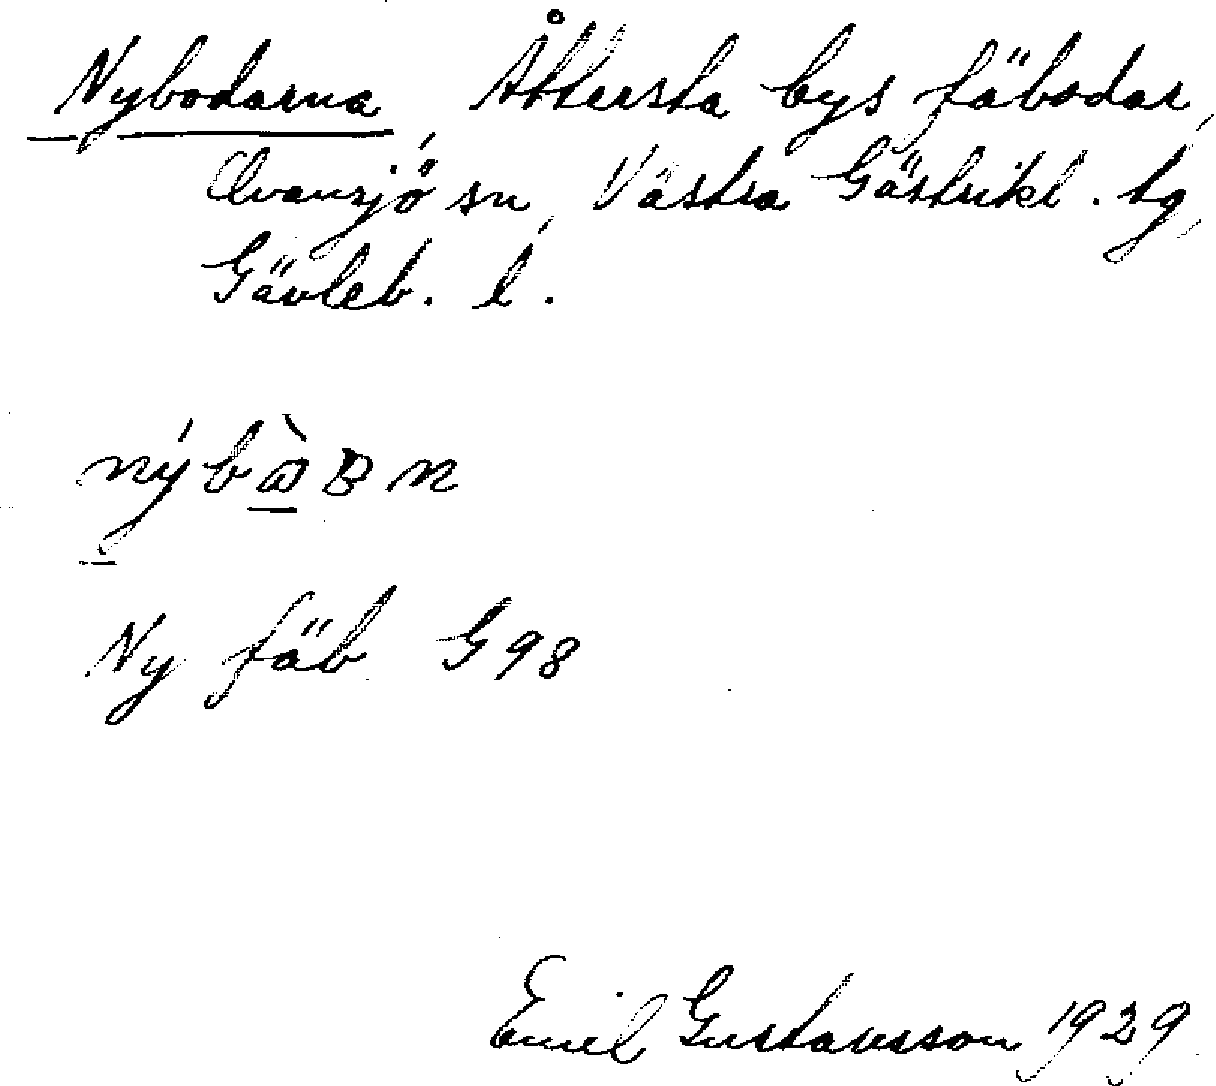 Nybodarna, Åttersta bys fäbodar,
Ovansjö sn, Västra Gästrikl. tg,
Gävleb. l.
Ny fäb G98
Emil Gustavsson 1929